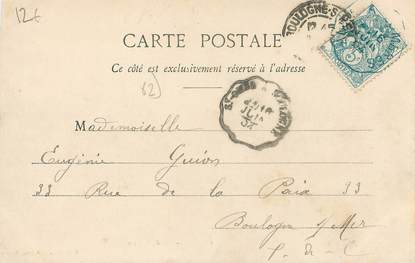 12€
CARTE POSTALE
Ce côté est exclusivement réservé à l'adresse
62)
Mademoiselle
Eugénie Guion
33 Rue de la Paix 33
Boulogne s/Mer
P. d. C
BOULOGNE-S
JUIN